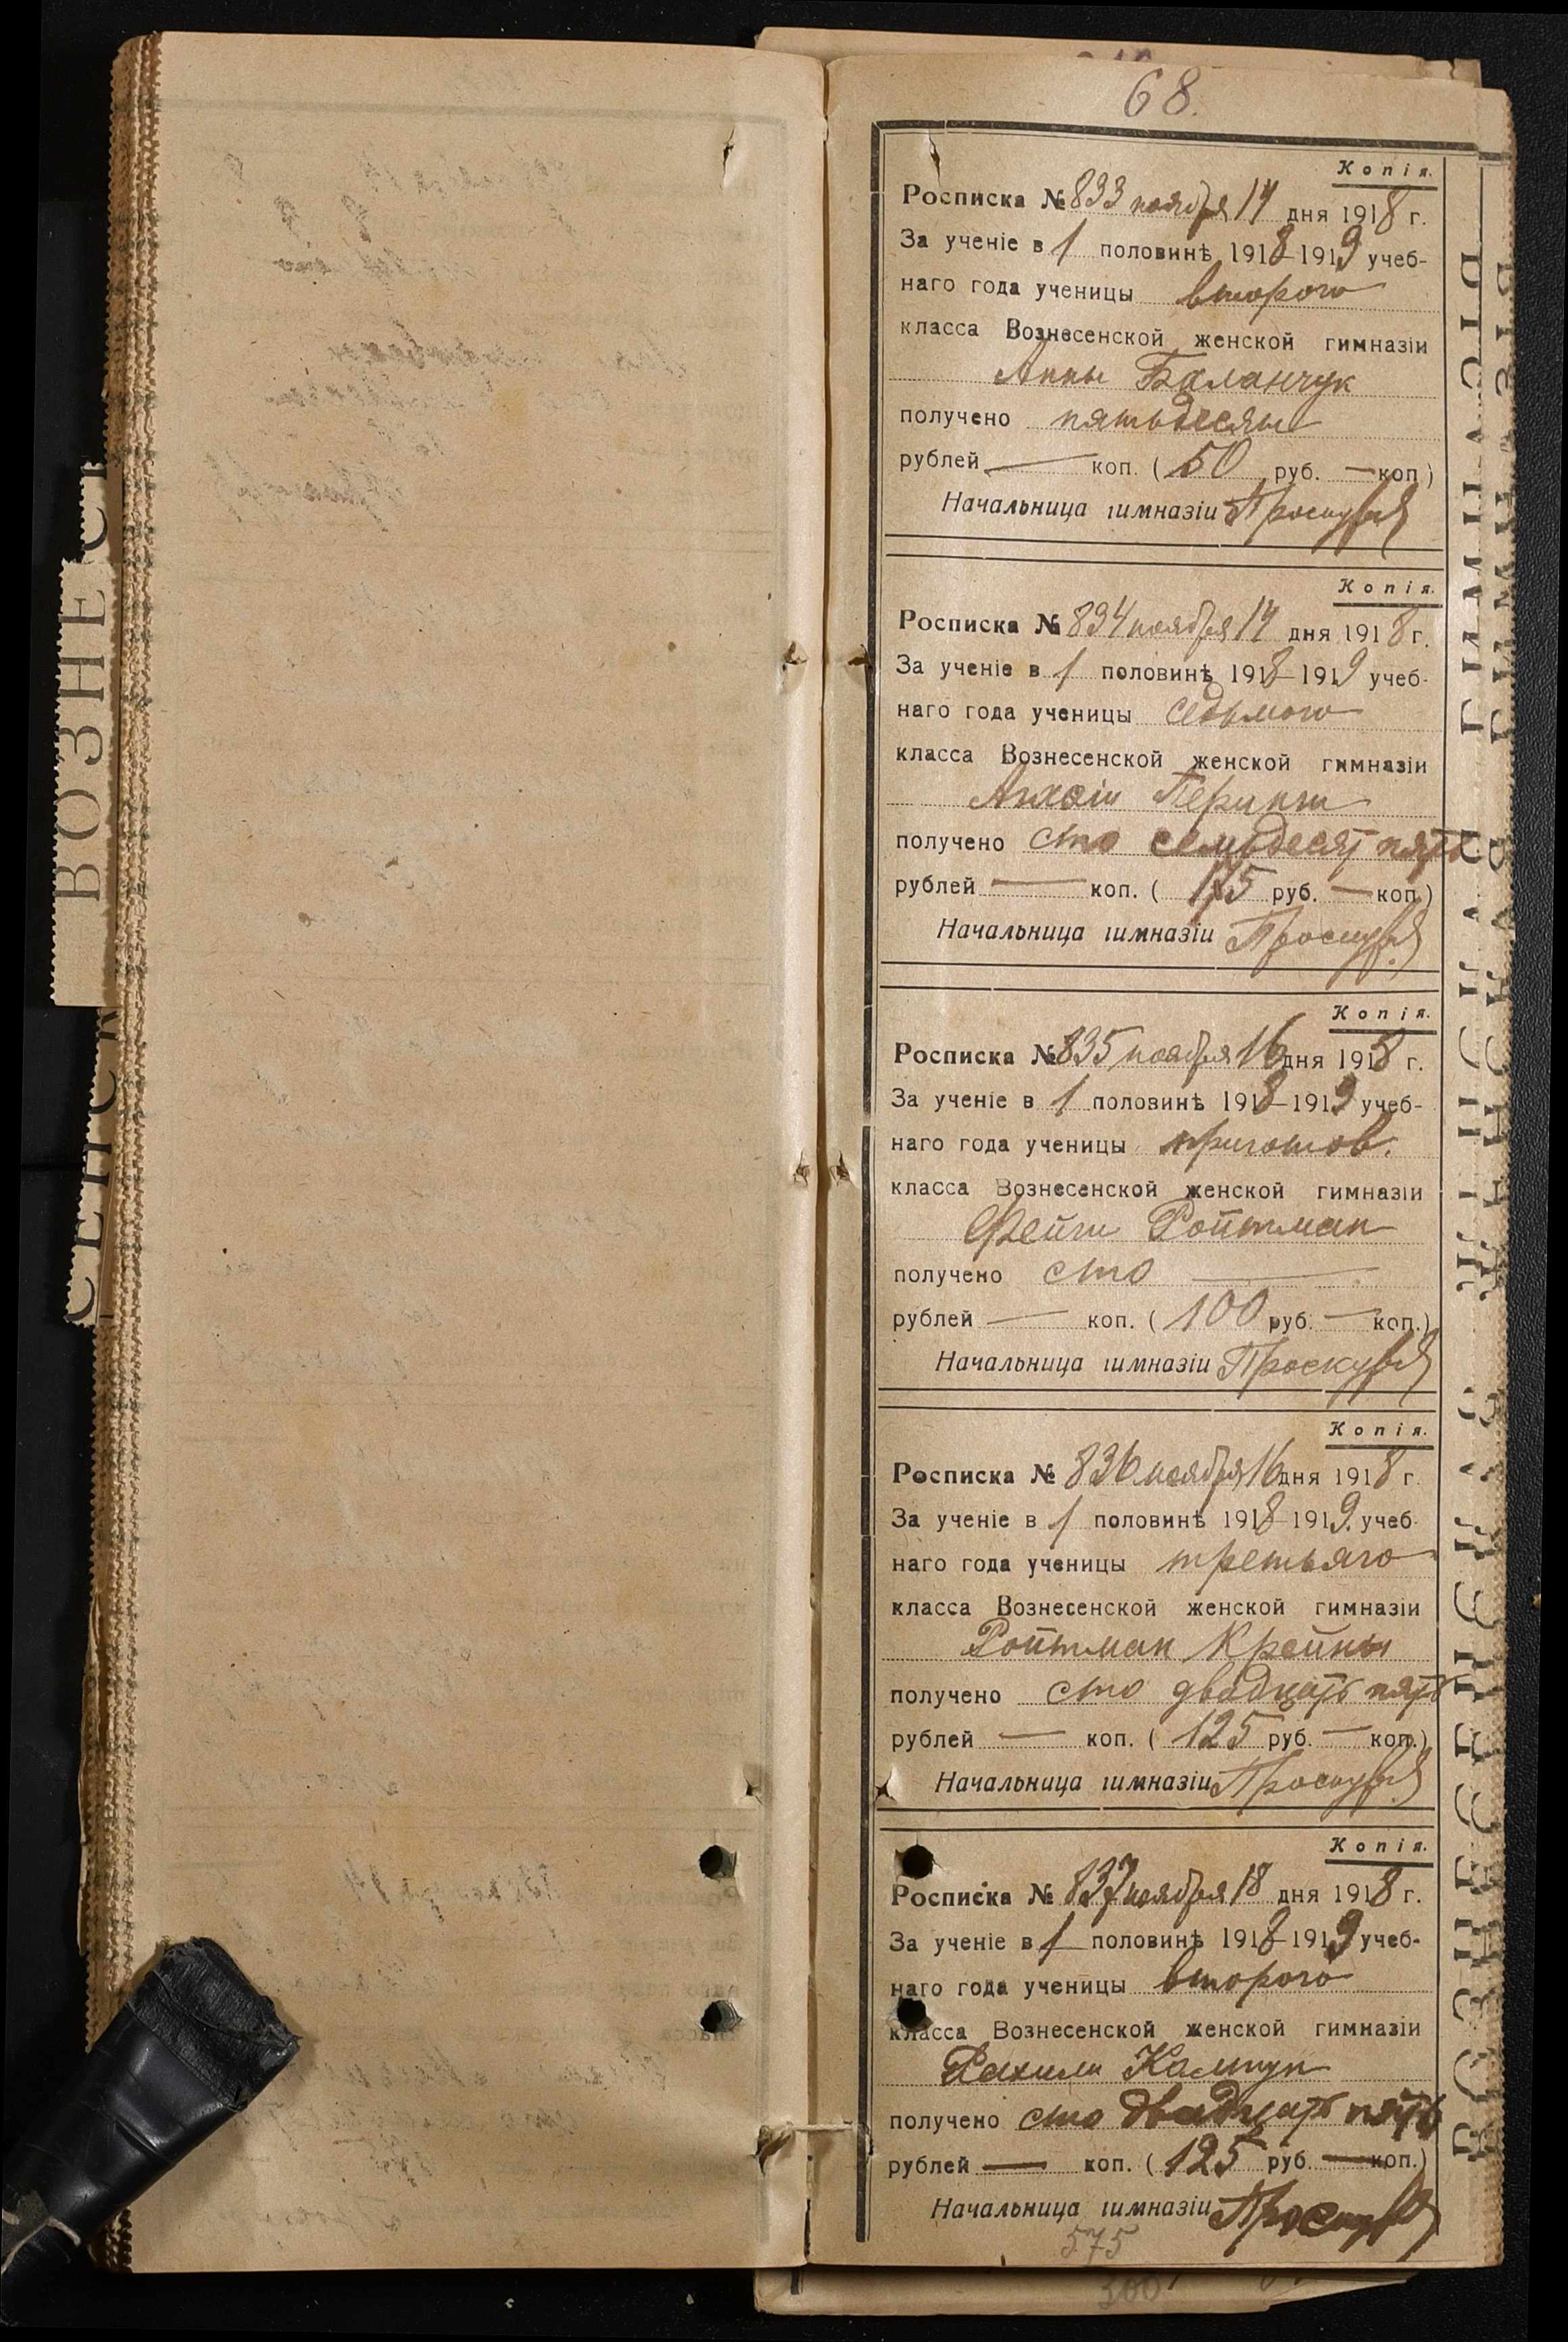 68.
Копія.
Росписка № 833 ноября 14 дня 1918 г.
За ученіе в 1 половинѣ 1918-1919 учеб-
наго года ученицы второго
класса Вознесенской женской гимназіи
Анны Баланчук
получено пятьдесят
рублей — коп. ( 50 руб. — коп )
Начальница гимназіи
Копія.
Росписка № 834 ноября 14 дня 1918 г.
За ученіе в 1 половинѣ 1918-1919 учеб-
наго года ученицы седьмого
класса Вознесенской женской гимназіи
получено сто семьдесят пять
рублей — коп. ( 175 руб. — коп )
Начальница гимназіи
Копія.
Росписка № 835 ноября 16 дня 1918 г.
За ученіе в 1 половинѣ 1918-1919 учеб-
наго года ученицы приготов.
класса Вознесенской женской гимназіи
Фейги Ройтман
получено сто —
рублей — коп. ( 100 руб. — коп.)
Начальница гимназіи
Копія.
Росписка № 836 ноября 16 дня 1918 г.
За ученіе в 1 половинѣ 1918-1919. учеб-
наго года ученицы третьяго
класса Вознесенской женской гимназіи
Ройтман Крейны
получено сто двадцать пять
рублей — коп. ( 125 руб. — коп.)
Начальница гимназіи
Копія.
Росписка № 837 ноября 18 дня 1918 г.
За ученіе в 1 половинѣ 1918-1919 учеб-
наго года ученицы второго
класса Вознесенской женской гимназіи
Рахили
получено сто двадцать пять
рублей — коп. ( 125 руб. — коп.)
Начальница гимназіи
575
300